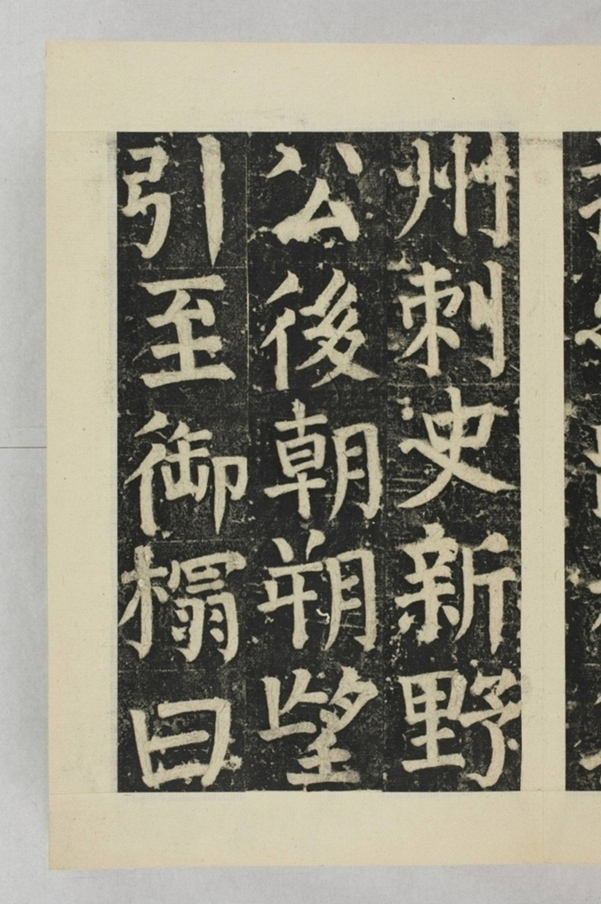 州刺史新野
公後朝朔望
引至御榻曰